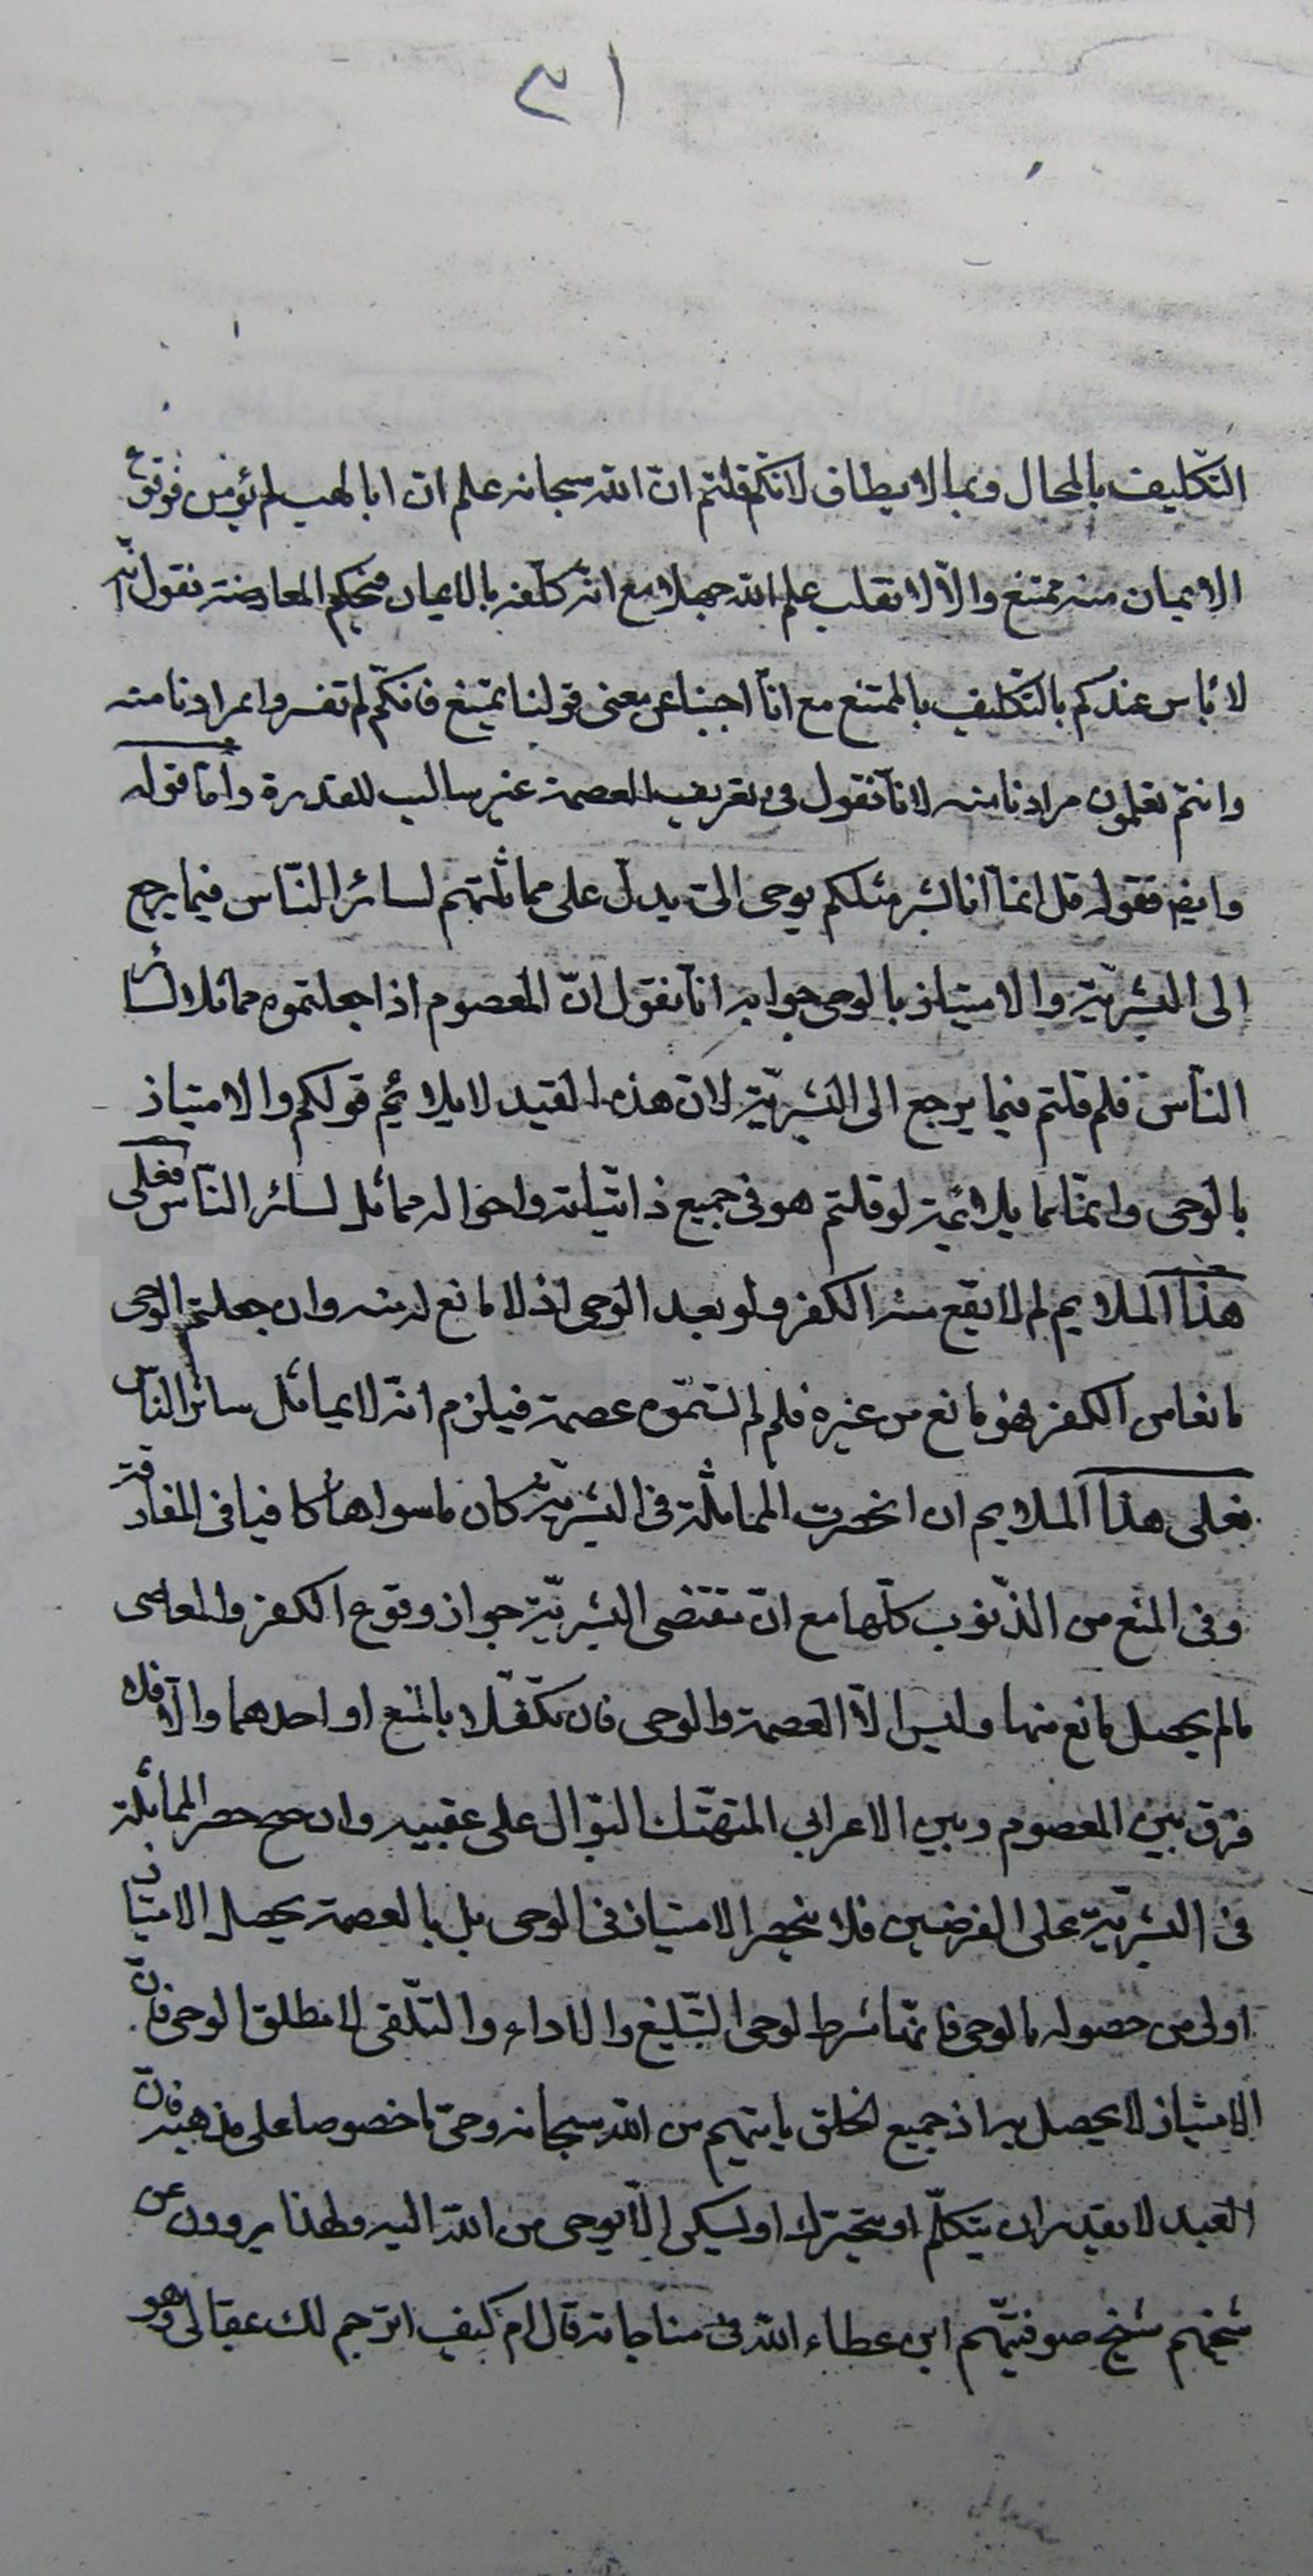 ٣١
التكليف بالمحال وبما لا يطاق لانكم قلتم انّ الله سبحانه علم ان ابا لهب لم يؤمن فوقوع
الايمان منه ممتنع والّا لانقلب علم الله جهلا مع انّه كلّفه بالايمان فبحكم المعارضة نقول انّه
لا بأس عندكم بالتّكليف بالممتنع مع انّا اجبنا عن معنى قولنا يمتنع فانكم لم تفسروا بمرادنا منه
وانتم تعلمون مرادنا منه لانّا نقول فى تعريف العصمة غير سالب للقدرة وأمّا قوله
وايضا فقوله قل انمّا انا بشر مثلكم يوحى الىّ يدلّ على مماثلتهم لسائر النّاس فيما يرجع
الى البشريّة والامتياز بالوحى جوابه انّا نقول انّ المعصوم اذا جعلتموه مماثلا لسائر
النّاس فلم قلتم فيما يرجع الى البشريّة لان هذه القيد لا يلائم قولكم والامتياز
بالوحى وانمّا يلائمه لو قلتم هو فى جميع ذاتيّاته واحواله مماثل لسائر النّاس فعلى
هذا الملايم لم لا يقع منه الكفر ولو بعد الوحى اذ لا مانع له منه وان جعلتم الوحى
مانعا من الكفر فهو مانع من غيره فلم لم تسمّوه عصمة فيلزم انّه لا يماثل سائر النّاس
فعلى هذا الملايم ان انحصرت المماثلة فى البشريّة كان ما سواها كافيا فى المفارقة
وفى المنع من الذّنوب كلّها مع انّ مقتضى البشريّة جواز وقوع الكفر والمعاصى
ما لم يحصل مانع منها وليس الّا العصمة والوحى فان تكفّلا بالمنع او احدهما والّا فلا
فرق بين المعصوم وبين الاعرابى المتهتّك البوّال على عقبيه وان صح حصر المماثلة
فى البشريّة على الفرضين فلا ينحصر الامتياز فى الوحى بل بالعصمة يحصل الامتياز
اولى من حصوله بالوحى فانمّا شرط الوحى التّبليغ والاداء والتلّقى لا مطلق الوحى فانّ
الامتياز لا يحصل به اذ جميع الخلق يأتيهم من الله سبحانه وحى ما خصوصا على مذهبه فانّ
العبد لا يقدر ان يتكلّم او يتحرك او يسكن الّا بوحى من الله اليه ولهذا يروون عن
شيخهم شيخ صوفيّتهم ابن عطاء الله فى مناجاته قال ام كيف اترجم لك بمقالى وهو